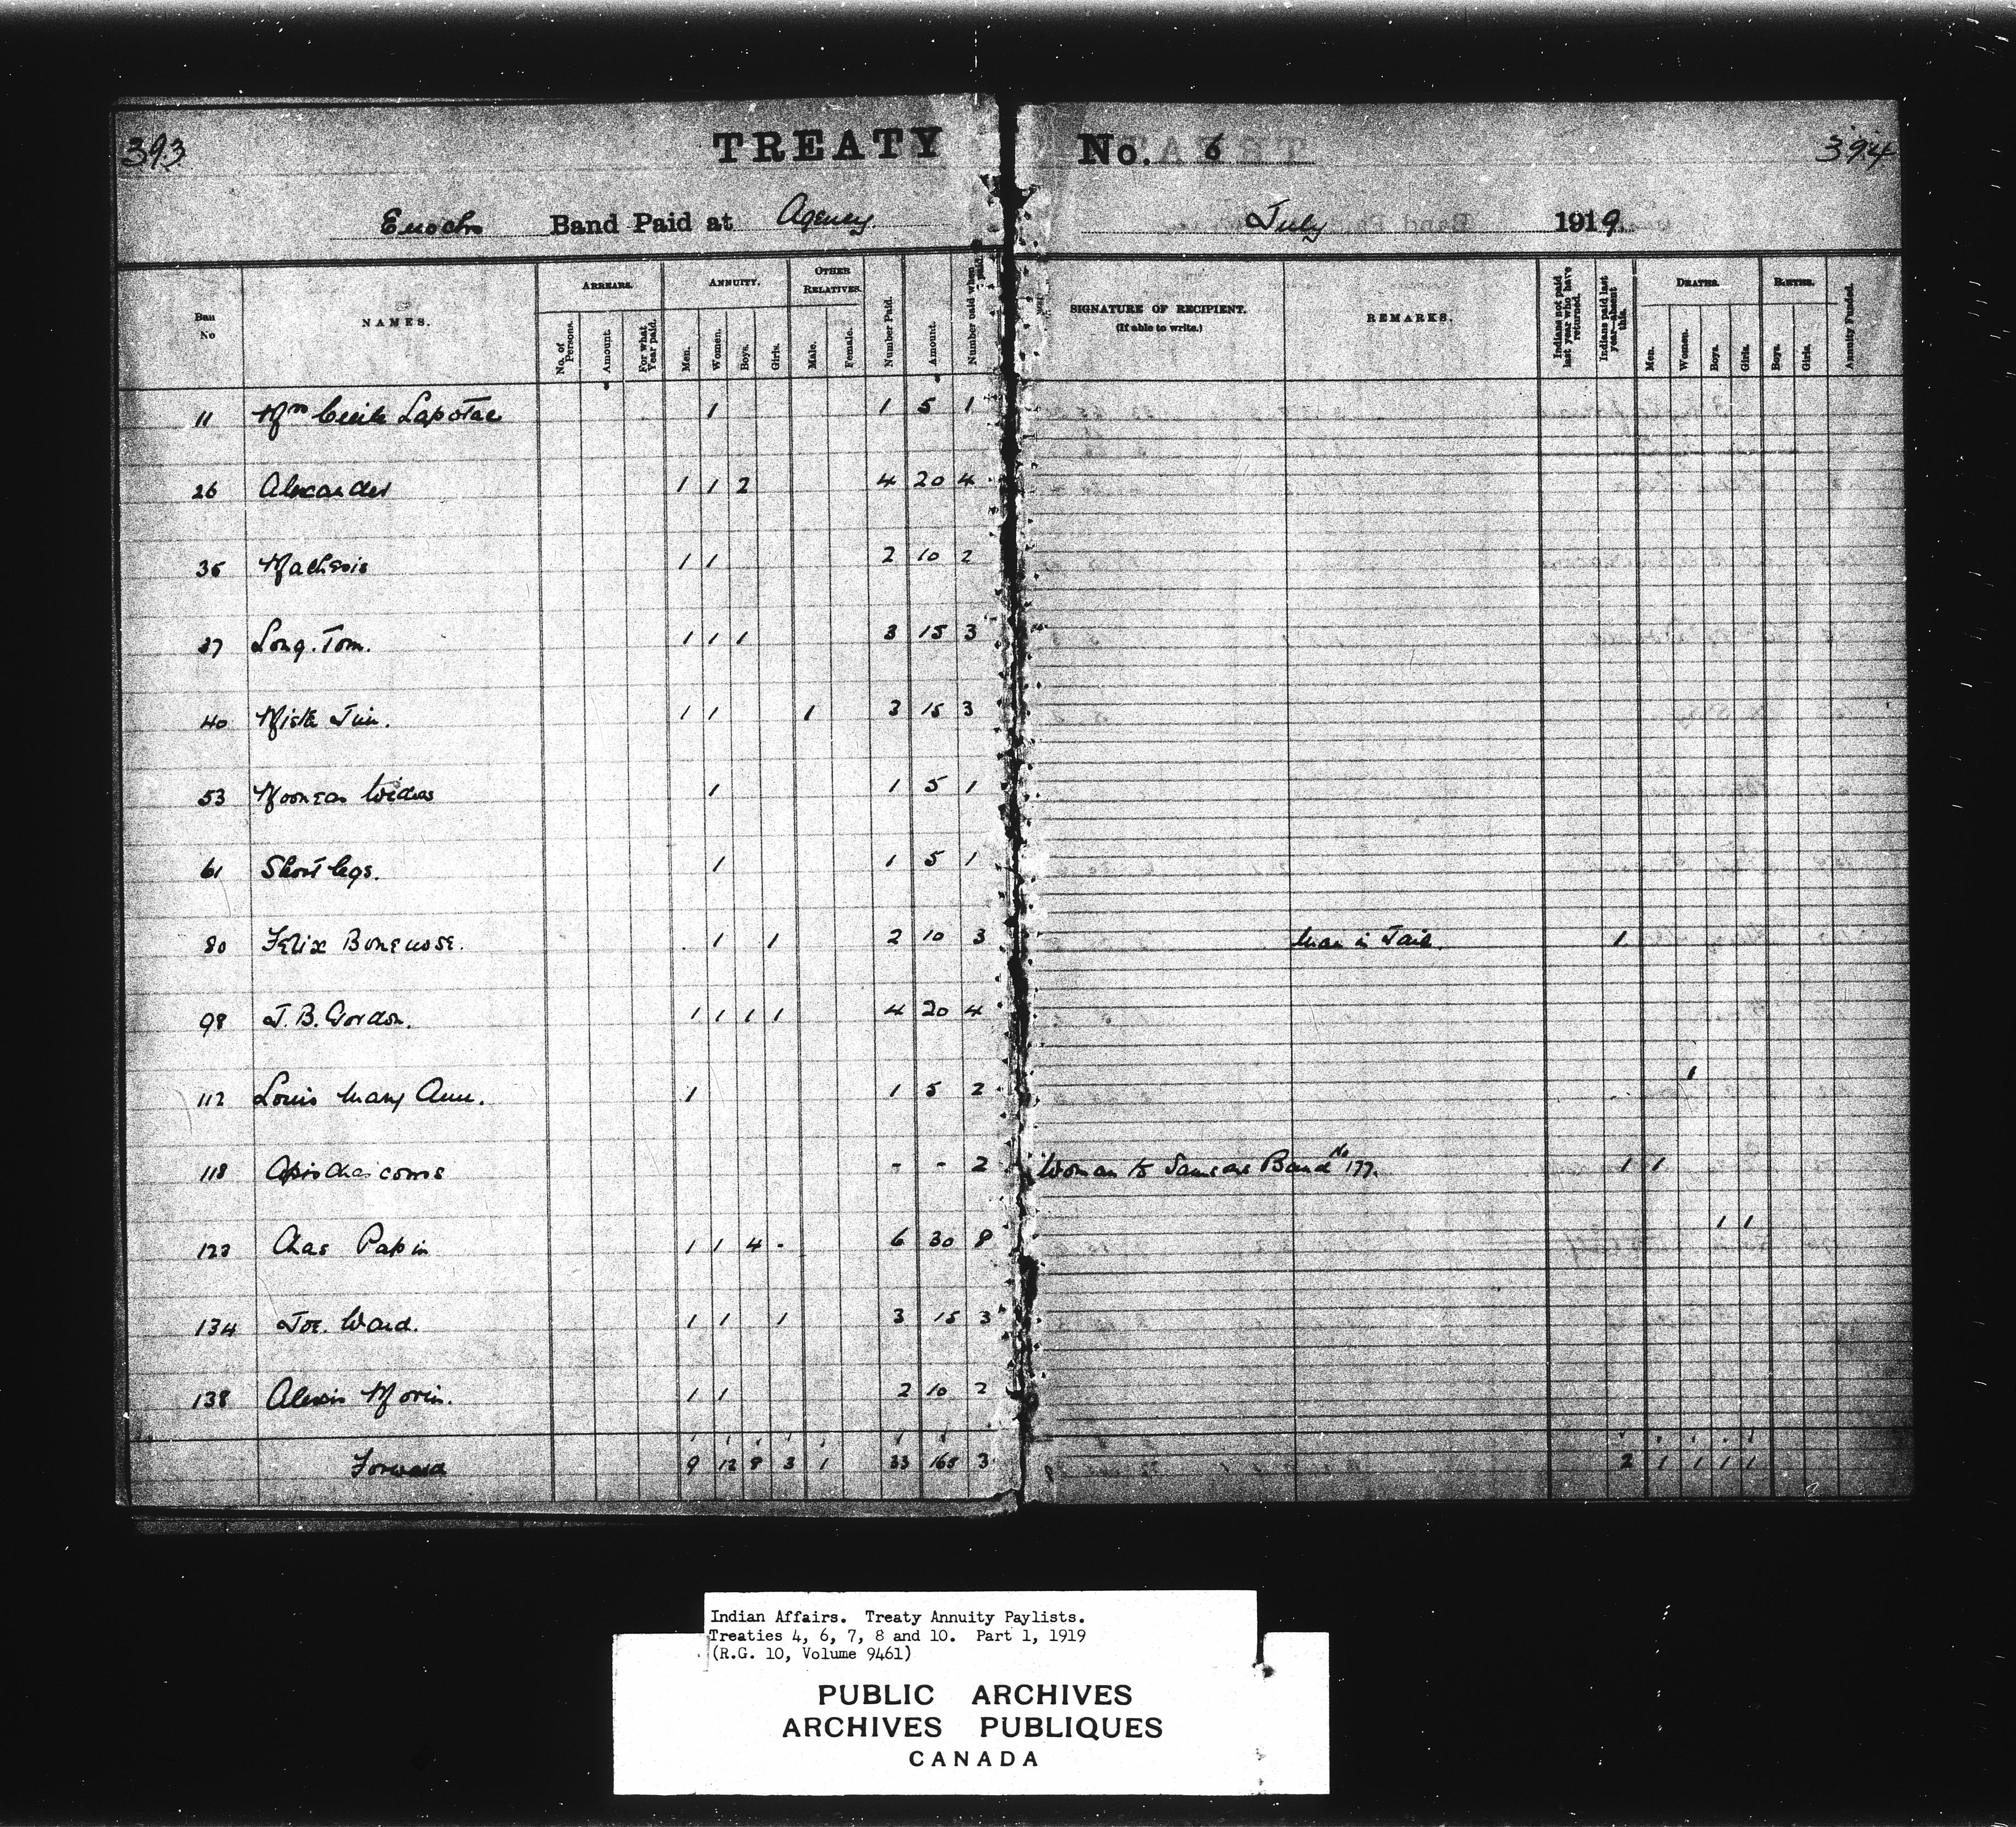 393
TREATY No. 6
394
Enochs Band Paid at Agency.
July 1919.
Ban No
NAMES.
ARREARS.
No. of Persons.
Amount.
For what Year paid.
ANNUITY.
Men.
Women.
Boys.
Girls.
OTHER RELATIVES.
Male.
Female.
Number Paid.
Amount.
Number paid when
SIGNATURE OF RECIPIENT.
(If able to write.)
REMARKS.
Indians not paid last year who have returned.
Indians paid last year—absent this.
DEATHS.
Men.
Women.
Boys.
Girls.
BIRTHS.
Boys.
Girls.
Annuity Funded.
11 Mrs Cecile Lapotac 1 1 5 1
26 Alexander 1 1 2 4 20 4
1 1 2 10 2
37 Long. Tom. 1 1 1 3 15 3
40 1 1 1 3 15 3
53 1 1 5 1
61 Short legs. 1 1 5 1
80 Felix Bonenose. 1 1 2 10 3 Man in Jail. 1
98 J. B. Gordon. 1 1 1 1 4 20 4
112 Louis Mary Ann. 1 1 5 2 1
118 - - 2 Woman to Samsons Band No 177. 1 1
Chas Papin 1 1 4 - 6 30 8 1 1
134 Joe. Ward. 1 1 1 3 15 3
138 Alexis Morin. 1 1 2 10 2
Forward 9 12 8 3 1 33 165 3 2 1 1 1 1
Indian Affairs. Treaty Annuity Paylists.
Treaties 4, 6, 7, 8 and 10. Part 1, 1919
(R.G. 10, Volume 9461)
PUBLIC ARCHIVES
ARCHIVES PUBLIQUES
CANADA